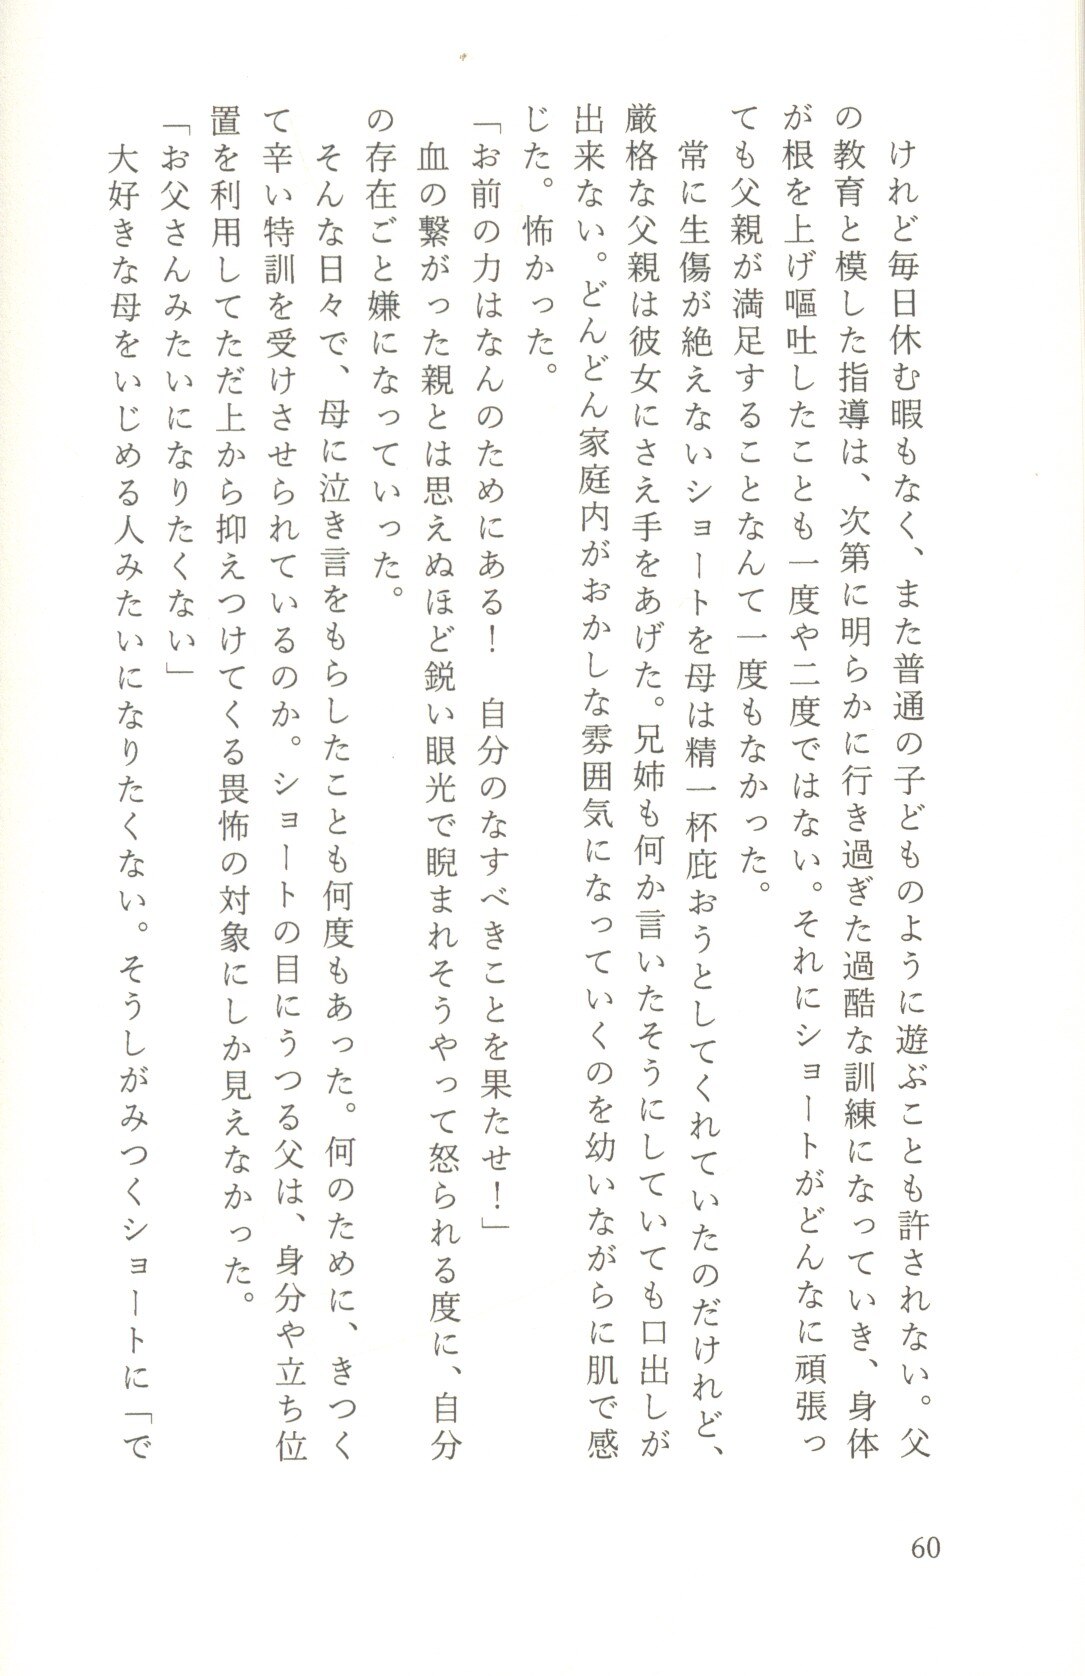 けれど毎日休む暇もなく、また普通の子どものように遊ぶことも許されない。父
の教育と模した指導は、次第に明らかに行き過ぎた過酷な訓練になっていき、身体
が根を上げ嘔吐したことも一度や二度ではない。それにショートがどんなに頑張っ
ても父親が満足することなんて一度もなかった。
常に生傷が絶えないショートを母は精一杯庇おうとしてくれていたのだけれど、
厳格な父親は彼女にさえ手をあげた。兄姉も何か言いたそうにしていても口出しが
出来ない。どんどん家庭内がおかしな雰囲気になっていくのを幼いながらに肌で感
じた。怖かった。
「お前の力はなんのためにある！　自分のなすべきことを果たせ！」
血の繋がった親とは思えぬほど鋭い眼光で睨まれそうやって怒られる度に、自分
の存在ごと嫌になっていった。
そんな日々で、母に泣き言をもらしたことも何度もあった。何のために、きつく
て辛い特訓を受けさせられているのか。ショートの目にうつる父は、身分や立ち位
置を利用してただ上から抑えつけてくる畏怖の対象にしか見えなかった。
「お父さんみたいになりたくない」
大好きな母をいじめる人みたいになりたくない。そうしがみつくショートに「で
60